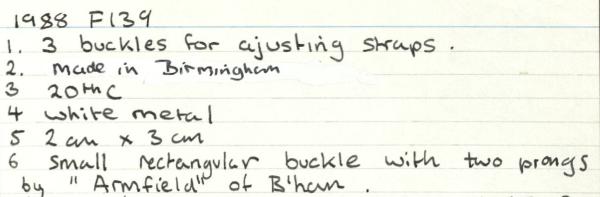 1988 F139
1. 3 buckles for ajusting straps.
2. made in Birmingham
3 20thC
4 white metal
5 2cm x 3cm
6 small rectangular buckle with two prongs
by "Armfield" of B'ham.